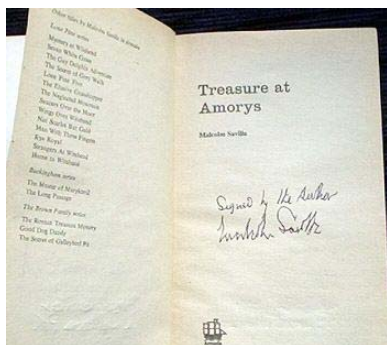 Other titles by Malcolm Saville in Armada
Lone Pine series
Mystery at Witchend
Seven White Gates
The Gay Dolphin Adventure
The Secret of Grey Walls
Lone Pine Five
The Elusive Grasshopper
The Neglected Mountain
Saucers Over the Moor
Wings Over Witchend
Not Scarlet But Gold
Man With Three Fingers
Rye Royal
Strangers At Witchend
Home to Witchend
Buckingham series
The Master of Maryknoll
The Long Passage
The Brown Family series
The Roman Treasure Mystery
Good Dog Dandy
The Secret of Galleybird Pit
Treasure at
Amorys
Malcolm Saville
Signed by the Author
Malcolm Saville